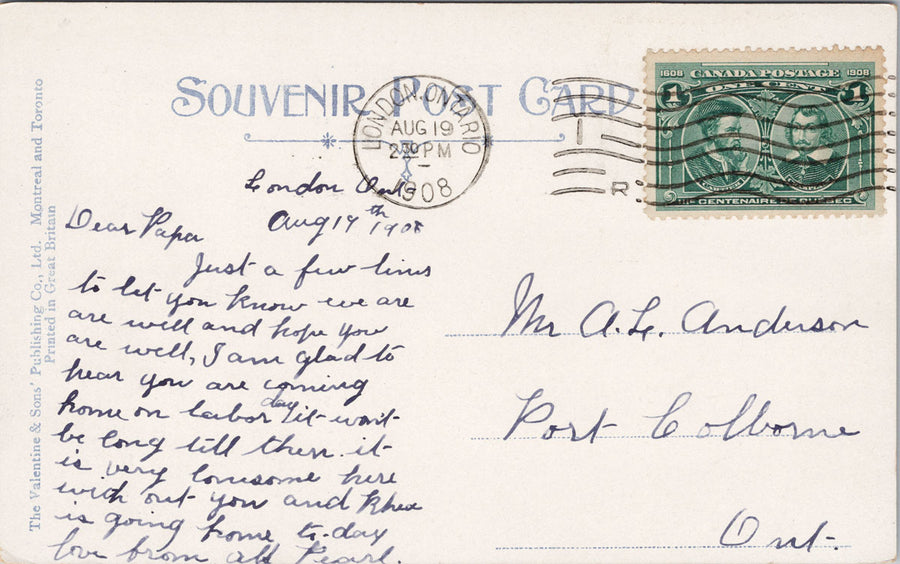 SOUVENIR POST CARD
LONDON, ONTARIO
AUG 19
230 PM
1908
R
1608 CANADA POSTAGE 1908
ONE CENT
1 1
IIIe CENTENAIRE DE QUEBEC
The Valentine & Sons' Publishing Co., Ltd. Montreal and Toronto
Printed in Great Britain
London Ont
Aug 19th 1908
Dear Papa
Just a few lines
to let you know we are
are well and hope you
are well, I am glad to
hear you are coming
home on labor day it wont
be long till then. it
is very lonesome here
with out you and
is going home to-day
love from all Pearl.
Mr A. L. Anderson
Port Colborne
Ont.